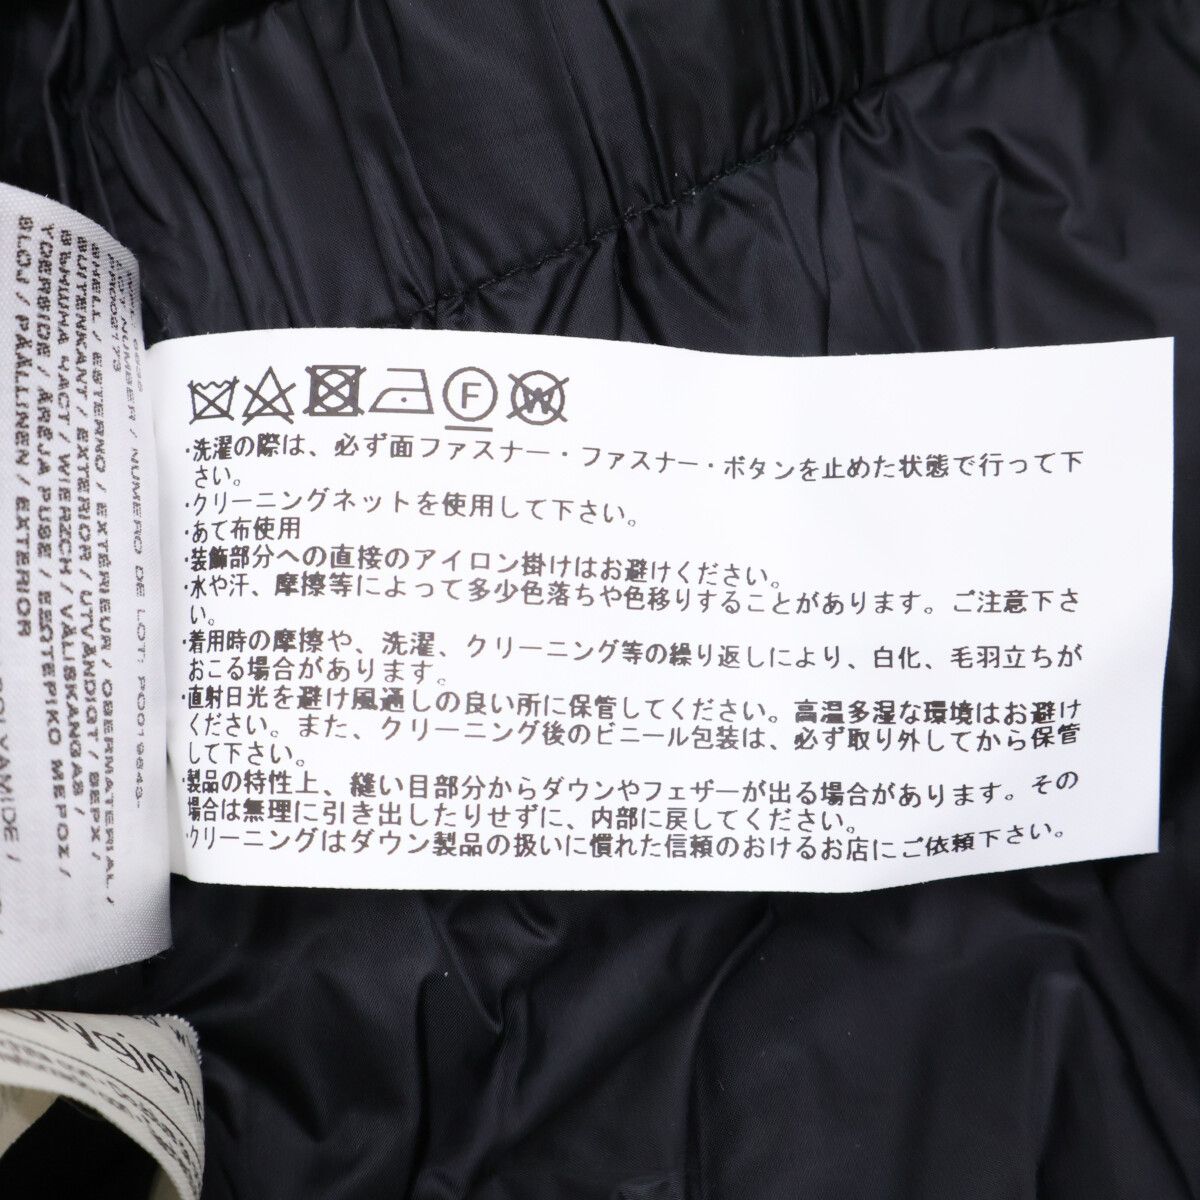 F
W
・洗濯の際は、必ず面ファスナー・ファスナー・ボタンを止めた状態で行って下
さい。
・クリーニングネットを使用して下さい。
・あて布使用
・装飾部分への直接のアイロン掛けはお避けください。
・水や汗、摩擦等によって多少色落ちや色移りすることがあります。ご注意下さ
い。
・着用時の摩擦や、洗濯、クリーニング等の繰り返しにより、白化、毛羽立ちが
おこる場合があります。
・直射日光を避け風通しの良い所に保管してください。高温多湿な環境はお避け
ください。また、クリーニング後のビニール包装は、必ず取り外してから保管
して下さい。
・製品の特性上、縫い目部分からダウンやフェザーが出る場合があります。その
場合は無理に引き出したりせずに、内部に戻してください。
・クリーニングはダウン製品の扱いに慣れた信頼のおけるお店にご依頼下さい。
LOT NUMBER / NUMERO DE LOT: P0019843-
PA0092173
SHELL / ESTERNO / EXTÉRIEUR / OBERMATERIAL /
BUITENKANT / EXTERIOR / UTVÄNDIGT / ВЕРХ /
ВЪНШНА ЧАСТ / WIERZCH / VÄLISKANGAS /
YDERSIDE / ÄREJA PUSE / ΕΞΩΤΕΡΙΚΟ ΜΕΡΟΣ /
SLOJ / PÄÄLLINEN / EXTERIOR
POLYAMIDE /